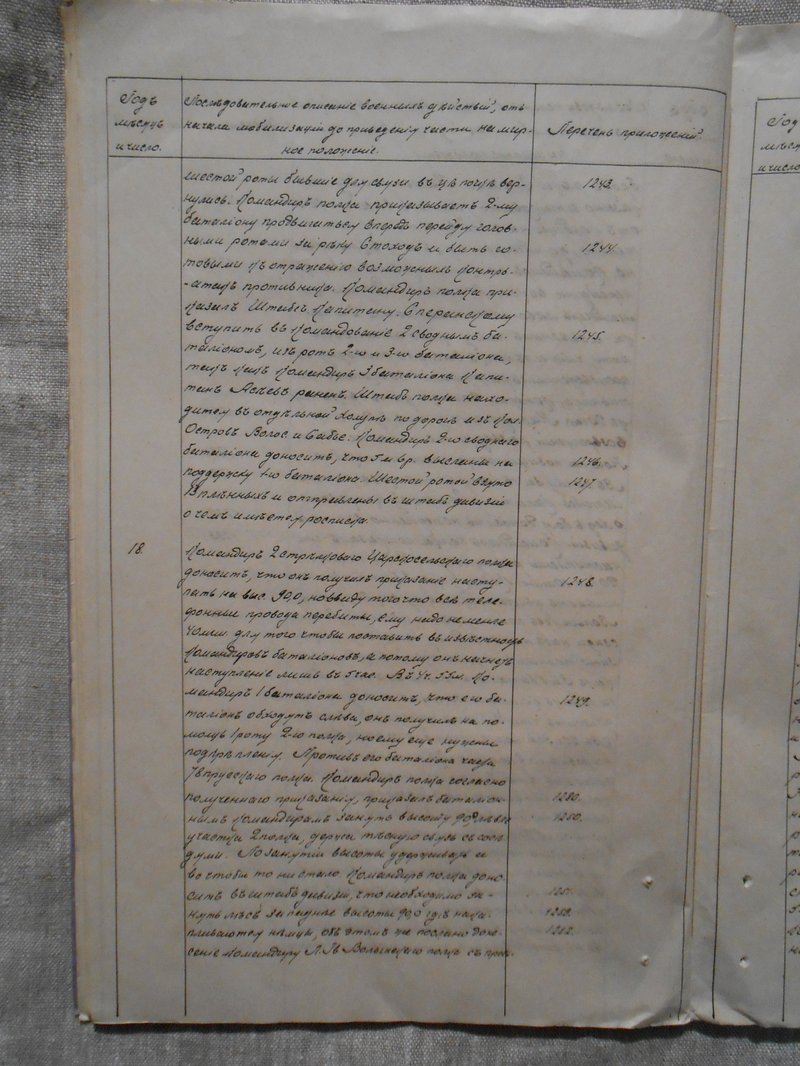 Годъ
мѣсяцъ
и число.
Послѣдовательное описаніе военныхъ дѣйствій, отъ
начала мобилизаціи до приведенія части на мир-
ное положеніе.
Перечень приложеній.
шестой роты бывшіе для связи въ полкъ вер- 1243.
нулись. Командиръ полка приказываетъ 2-му
баталіону продвигаться впередъ перейдя голов-
ными ротами за рѣку Стоходъ и быть го- 1244.
товыми къ отраженію возможныхъ контръ-
-атакъ противника. Командиръ полка при-
казалъ Штабсъ Капитану Сперанскому
вступить въ командованіе 2 своднымъ ба- 1245.
таліономъ, изъ ротъ 2-го и 3-го баталіона,
такъ какъ командиръ 3 баталіона Капи-
танъ раненъ. Штабъ полка нахо-
дится въ отдѣльной халупѣ по дорогѣ изъ Кол.
Островъ Волос. и Бабье. Командиръ 2-го своднаго
баталіона доноситъ, что 5 и 6 р. высланы на 1246.
поддержку 1-го баталіона. Шестой ротой взято 1247.
13 плѣнныхъ и отправлены въ штабъ дивизіи
о чемъ имѣется росписка.
18. Командиръ 2 стрѣлковаго Царскосельскаго полка
доноситъ, что онъ получилъ приказаніе насту- 1248.
пать на выс 90,0, но ввиду того что всѣ теле-
фонные провода перебиты, ему надо не менѣе
40 мин для того чтобы поставить въ извѣстность
командировъ баталіоновъ, а потому онъ начнетъ
наступленіе лишь въ 5 час. В 4 ч. 55 м. Ко-
мандиръ 1 баталіона доноситъ, что его ба- 1249.
таліонъ обходятъ слѣва, онъ получилъ на по-
мощь 1 роту 2-го полка, но ему еще нужны
подкрѣпленія. Противъ его баталіона части
78 прусскаго полка. Командиръ полка согласно
полученнаго приказанія, приказалъ баталіон- 1250.
нымъ командирамъ занять высоту 90,0 1250.
участка 2 полка, держа тѣсную связь съ сосѣ-
дями. По занятіи высоты удерживать и
во чтобы то ни стало. Командиръ полка доно-
ситъ въ штабъ дивизіи, что необходимо за- 1251.
нять лѣсъ западнѣе высоты 90,0 гдѣ нака- 1252.
пливаются нѣмцы, объ этомъ же послано доне-
сеніе командиру Л. Гв Волынскаго полка съ
Годъ
мѣсяцъ
и число.